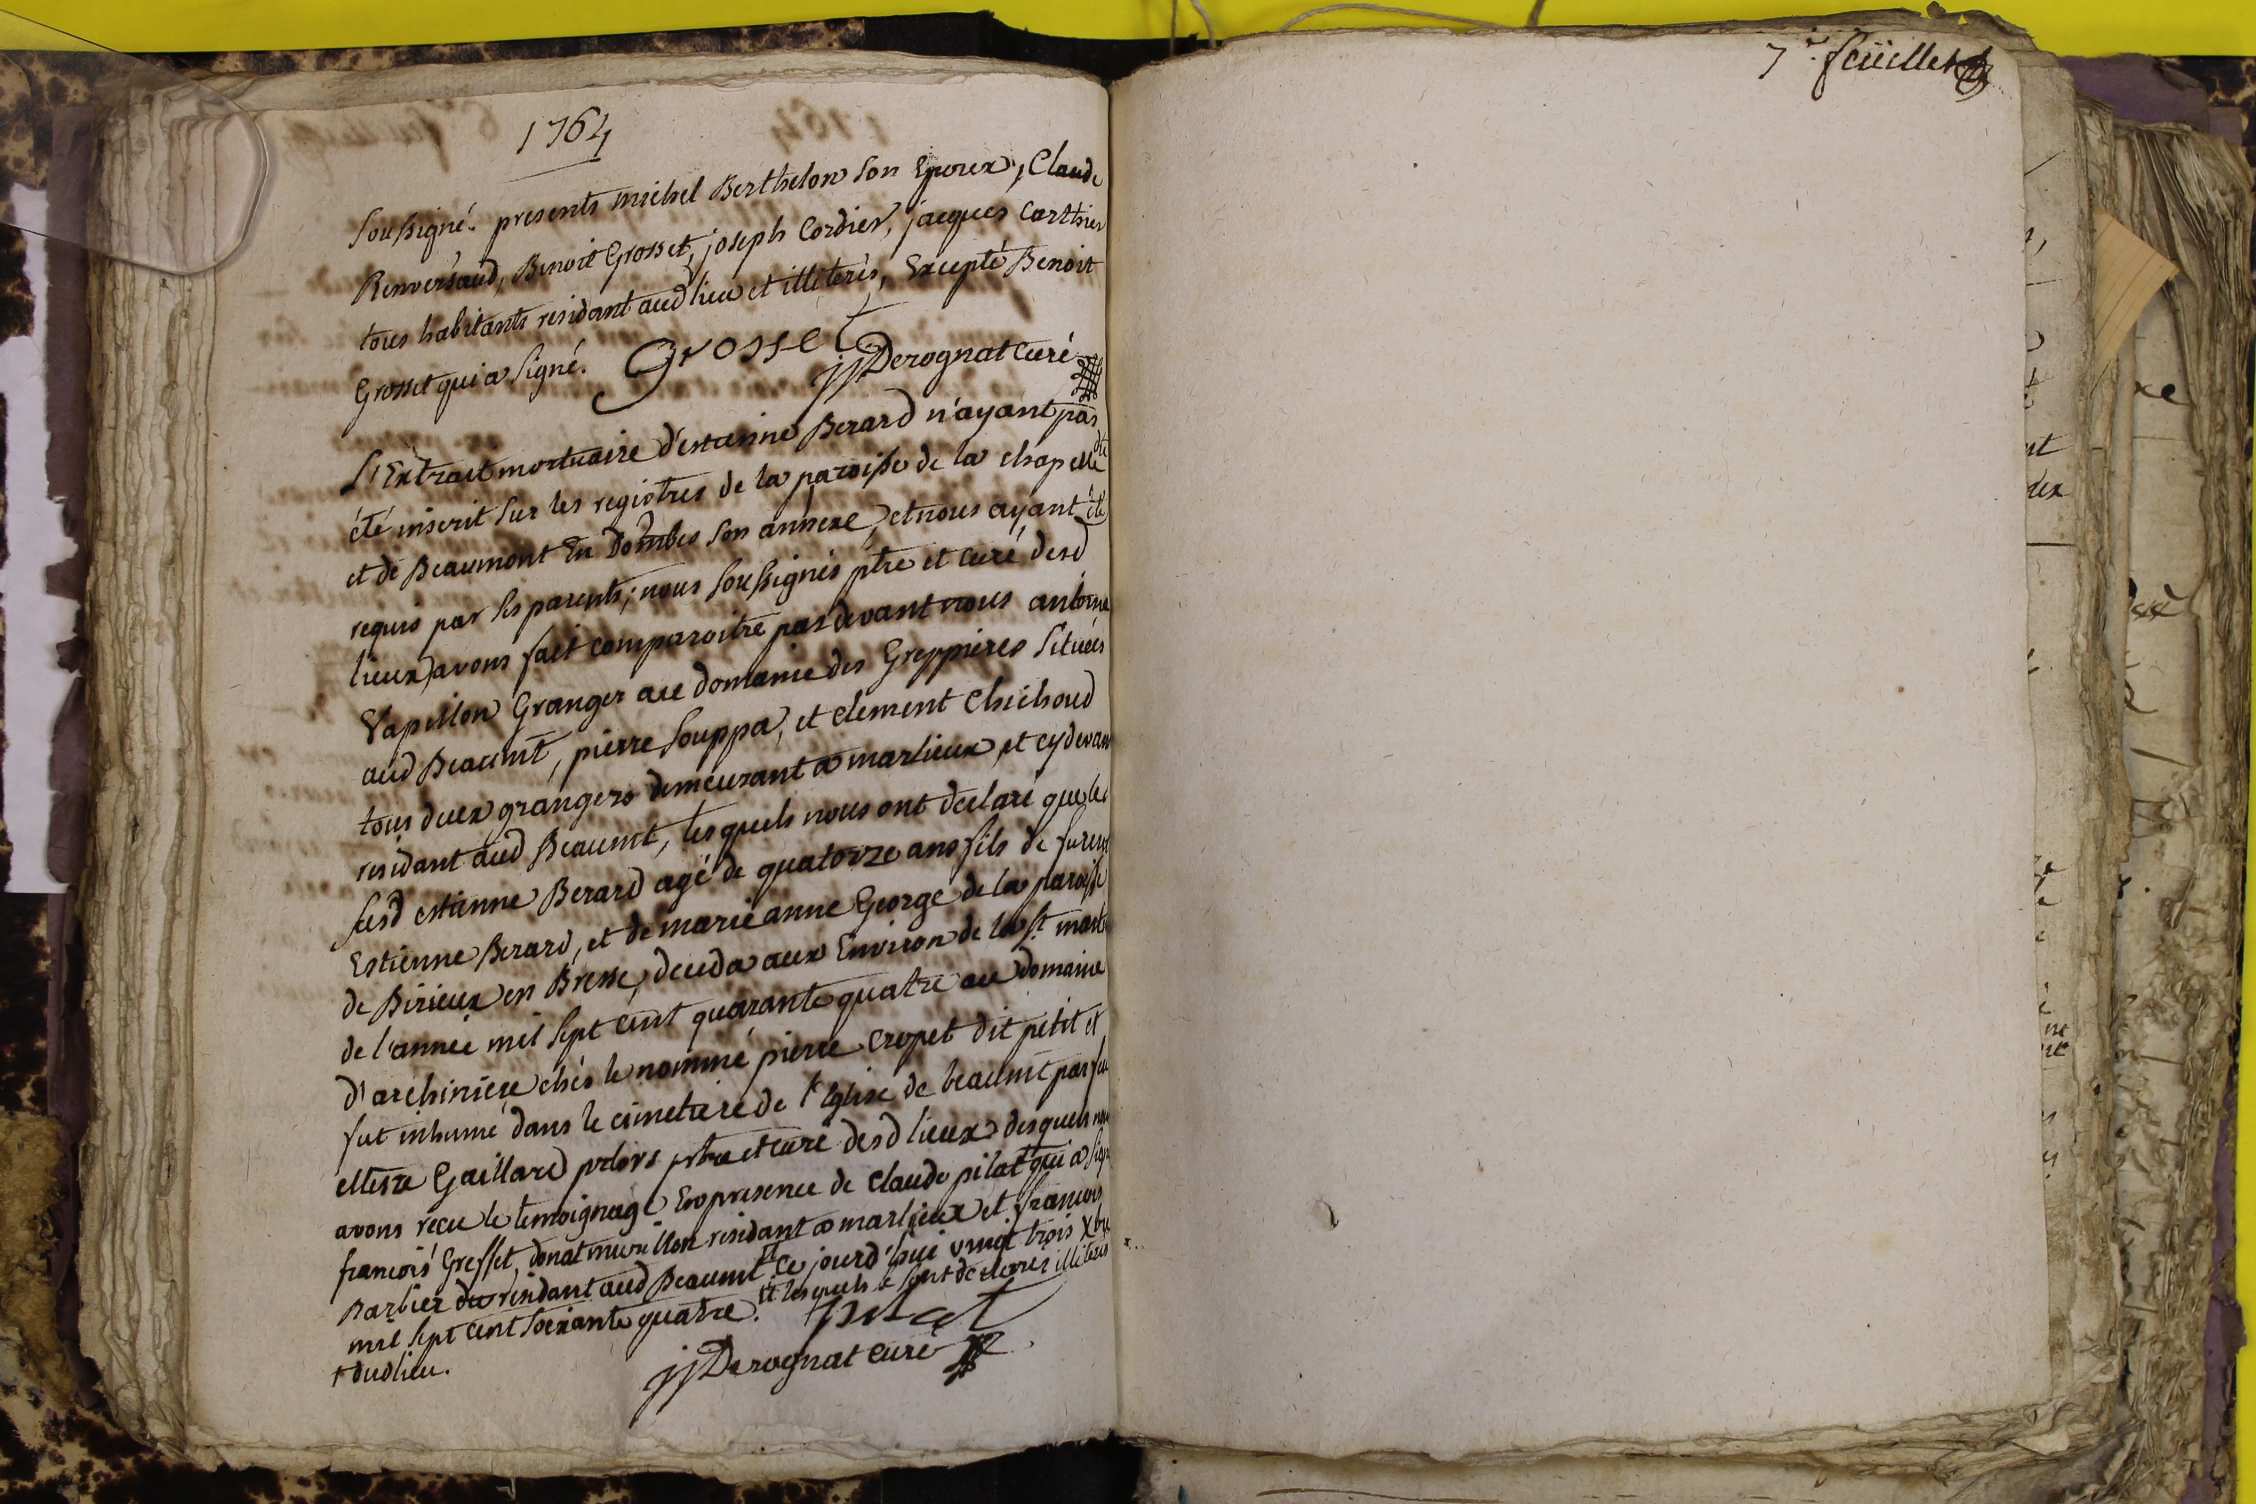 1764
soussigné. presents michel Berthelon son Epoux, Claude
Renversaud, Benoit Grosset, joseph Cordier, jacques Carthier
tous habitants residant aud lieu et illiterés, Excepté Benoit
Grosset qui a signé. Grosset
jj Derognat curé
L'Extrait mortuaire d'estienne Berard n'ayant pas
été inscrit sur les registres de la paroisse de la chapelle
et de Beaumont En Dombes son annexe, et nous ayant été
requis par ses parents; nous soussignés ptre et curé desd
lieux) avons fait comparoitre pardevant nous antoine
Vapillon Granger au domaine des Greppieres situées
aud Beaumt, pierre souppa, et clement Chichoud
tous deux grangers demeurant a marlieux, et cydevant
residant aud Beaumt, lesquels nous ont declaré que le
susd estienne Berard agé de quatorze ans fils de furent
Estienne Berard, et de marie anne George de la paroisse
de Birieux en Bresse, deceda aux Environ de la st martin
de l'année mil sept cent quarante quatre au domaine
d'archiniere chés le nommé pierre cropet dit petit et
fut inhumé dans le cimetiere de l'Eglise de beaumt par feu
Messre Gaillard prlors ptre et curé desd lieux desquels nous
avons reçu le temoignage En presence de Claude pilat qui a signé
francois Gresset, donat murillon residant a marlieux et francois
Barbier residant aud Beaumt ce jourd'hui vingt trois Xbre
et lesquels se sont declarés illiterés
mil sept cent soixante quatre. pilat
+ dudlieu.
jj Derognat curé
7e. feüillet